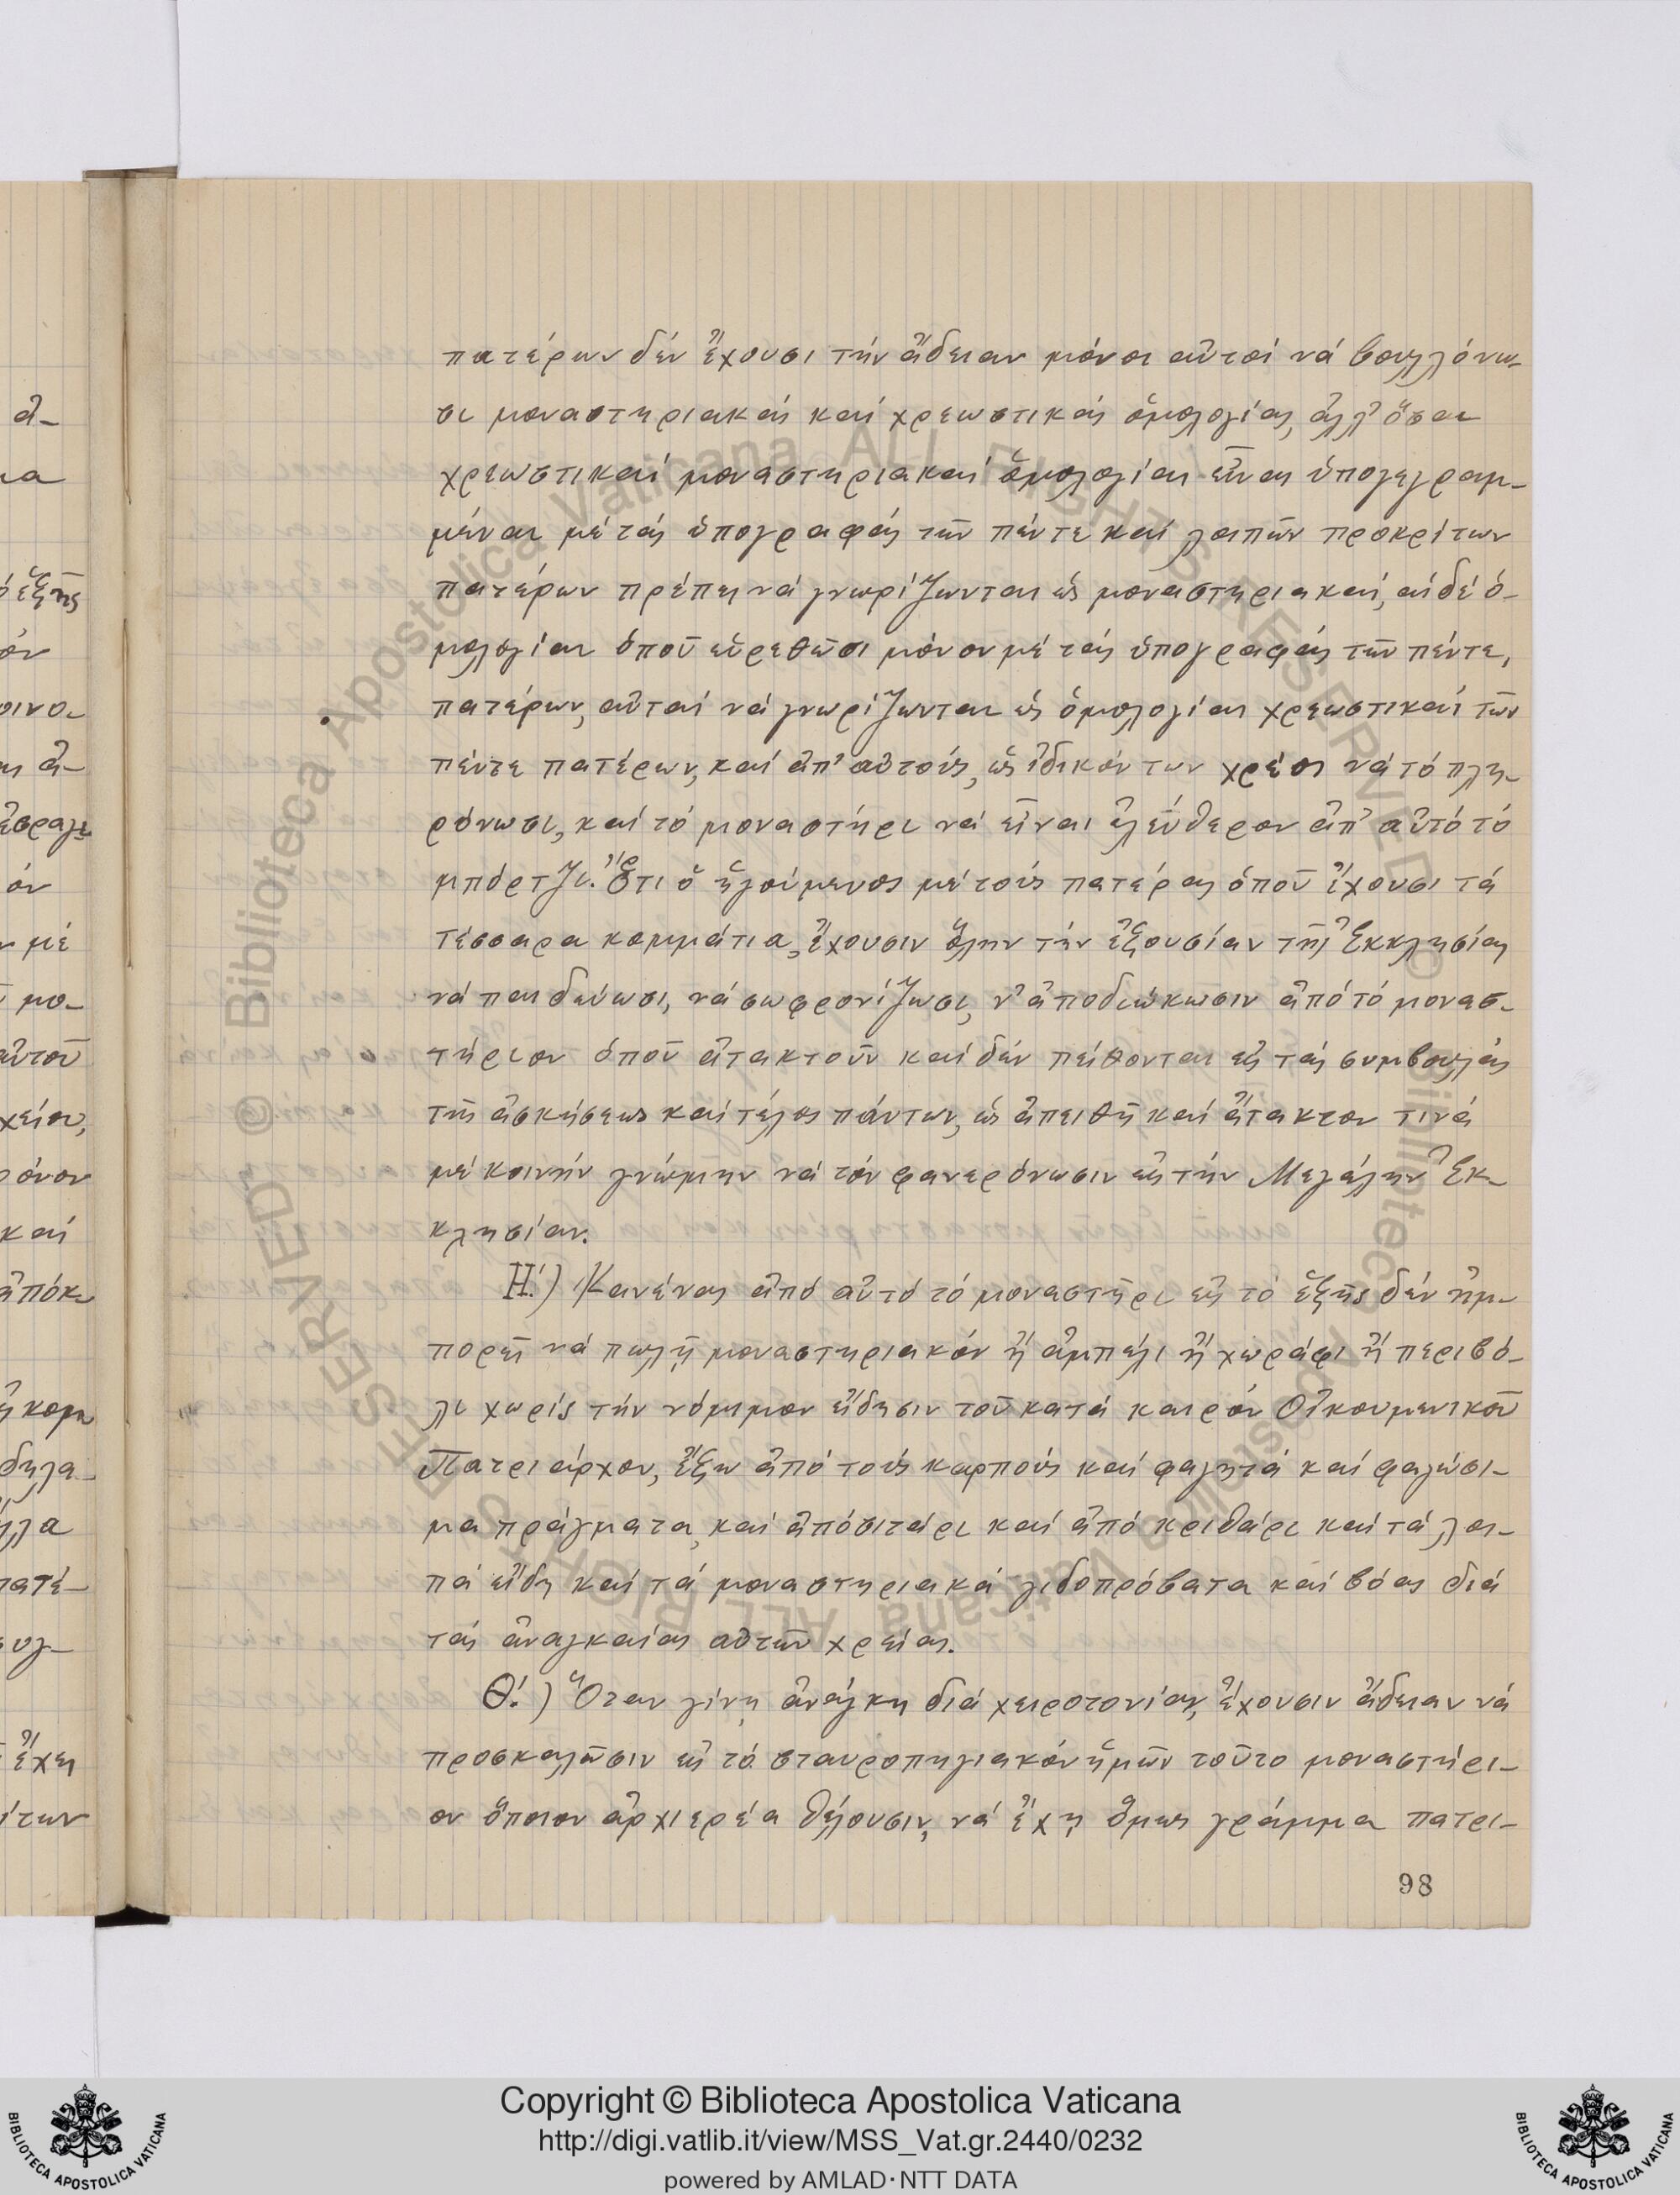 πατέρων δέν ἔχουσι τήν ἄδειαν μόνοι αὐτοί νά βουλλόνω-
σι μοναστηριακάς καί χρεωστικάς ὁμολογίας, ἀλλ' ὅσαι
χρεωστικαί μοναστηριακαί ὁμολογίαι εἶναι ὑπογεγραμ-
μέναι μέ τάς ὑπογραφάς τῶν πέντε καί λοιπῶν προκρίτων
πατέρων πρέπει νά γνωρίζωνται ὡς μοναστηριακαί, αἱ δέ ὁ-
μολογίαι ὁποῦ εὑρεθῶσι μόνον μέ τάς ὑπογραφάς τῶν πέντε,
πατέρων, αὐταί νά γνωρίζωνται ὡς ὁμολογίαι χρεωστικαί τῶν
πέντε πατέρων, καί ἀπ' αὐτούς, ὡς ἰδικόν των χρέος νά τό πλη-
ρόνωσι, καί τό μοναστήρι νά εἶναι ἐλεύθερον ἀπ' αὐτό τό
μπόρτζι. Ὅτι ὁ ἡγούμενος μέ τούς πατέρας ὁποῦ ἔχουσι τά
τέσσαρα κομμάτια, ἔχουσιν ὅλην τήν ἐξουσίαν τῆς Ἐκκλησίας
νά παιδεύωσι, νά σωφρονίζωσι, ν' ἀποδιώκωσιν ἀπό τό μονασ-
τήριον ὁποῦ ἀτακτοῦν καί δέν πείθονται εἰς τάς συμβουλάς
τῆς ἀσκήσεως καί τέλος πάντων, ὡς ἀπειθῆ καί ἄτακτον τινά
μέ κοινήν γνώμην νά τόν φανερόνωσιν εἰς τήν Μεγάλην Ἐκ-
κλησίαν.
Η΄.) Κανένας ἀπό αὐτό τό μοναστῆρι εἰς τό ἑξῆς δέν ἠμ-
πορεῖ νά πωλῇ μοναστηριακόν ἤ ἀμπέλι ἤ χωράφι ἤ περιβό-
λι χωρίς τήν νόμιμον εἴδησιν τοῦ κατά καιρόν Οἰκουμενικοῦ
Πατριάρχου, ἔξω ἀπό τούς καρπούς καί φαγητά καί φαγώσι-
μα πράγματα, καί ἀπό σιτάρι καί ἀπό κριθάρι καί τά λοι-
πά εἴδη καί τά μοναστηριακά γιδοπρόβατα καί βόας διά
τάς ἀναγκαίας αὐτῶν χρείας.
Θ΄.) Ὅταν γίνῃ ἀνάγκη διά χειροτονίαν, ἔχουσιν ἄδειαν νά
προσκαλῶσιν εἰς τό σταυροπηγιακόν ἡμῶν τοῦτο μοναστήρι-
ον ὅποιον ἀρχιερέα θέλουσιν, νά ἔχῃ ὅμως γράμμα πατρι-
98
Copyright © Biblioteca Apostolica Vaticana
http://digi.vatlib.it/view/MSS_Vat.gr.2440/0232
powered by AMLAD·NTT DATA